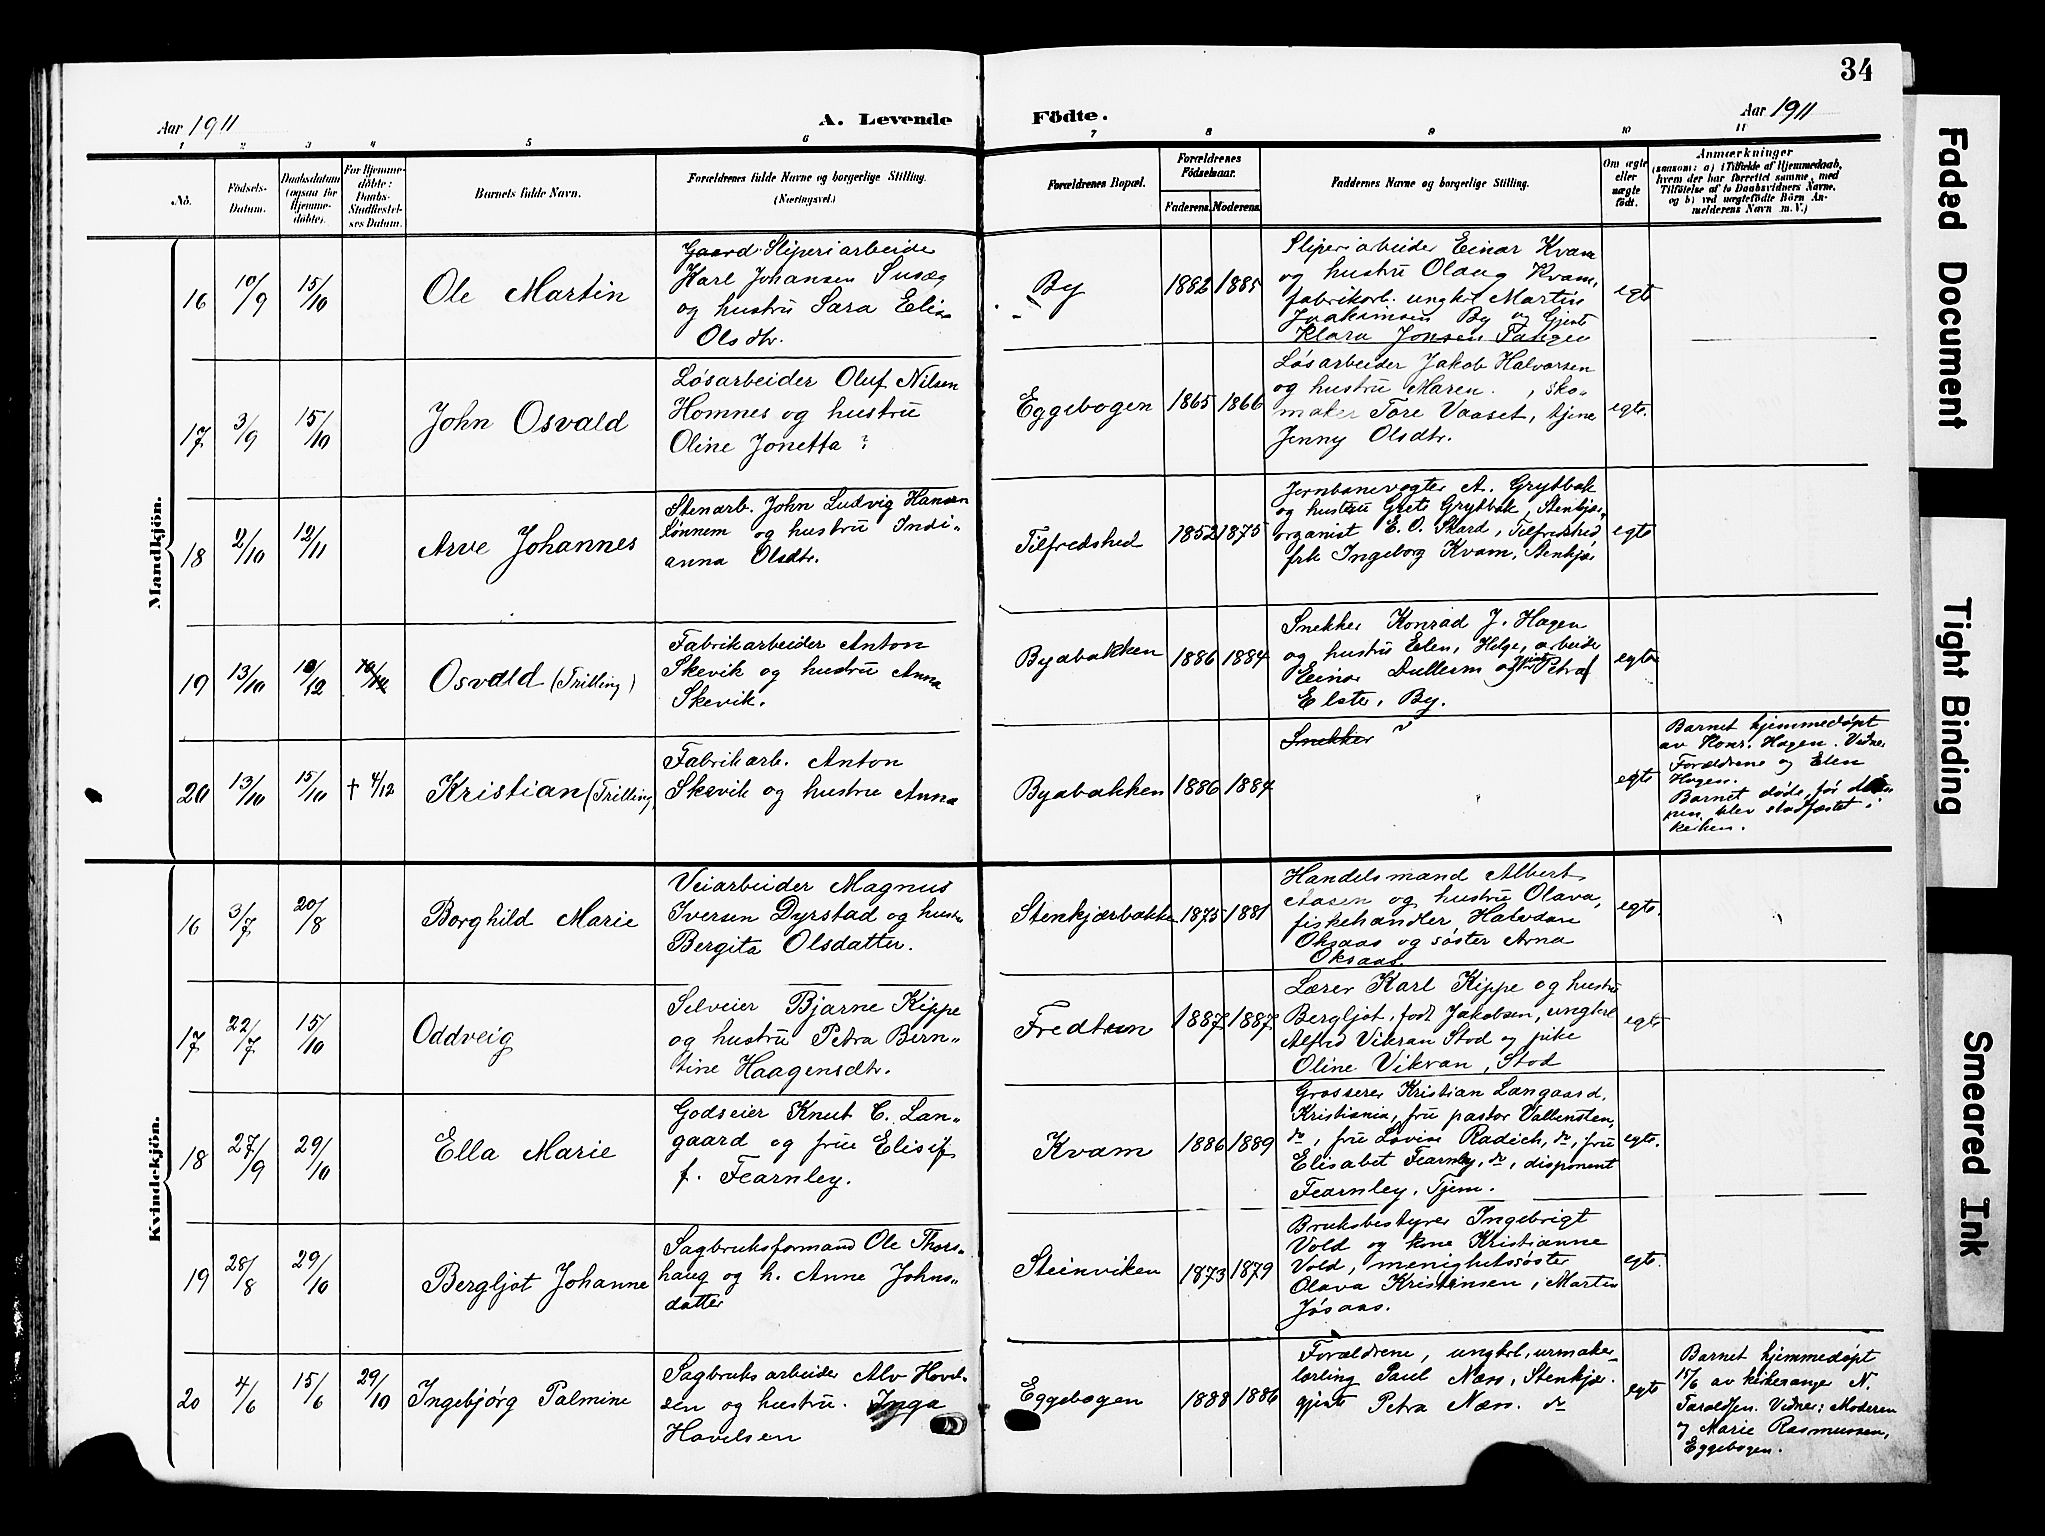 34
Aar 1911
A. Levende Födte.
Aar 1911
1 2 3 4 5 6 7 8 9 10 11
No.
Födsels-
Datum.
Daabsdatum
(ogsaa for
Hjemme-
döbte).
For Hjemme-
döbte:
Daabs-
Stadfæstel-
ses Datum.
Barnets fulde Navn.
Forældrenes fulde Navne og borgerlige Stilling.
(Næringsvei.)
Forældrenes Bopæl.
Forældrenes
Födselsaar.
Faderens. Moderens.
Faddernes Navne og borgerlige Stilling.
Om ægte
eller
uægte
födt.
Anmærkninger
(saasom: a) i Tilfælde af Hjemmedaab,
hvem der har forrettet samme, med
Tilföielse af to Daabsvidners Navne,
og b) ved uægtefödte Börn An-
melderens Navn m. V.)
Mandkjön.
16 10/9 15/10
Ole Martin
Gaard Sliperiarbeide
Karl Johansen
og hustru Sara Elis-
Olsdtr.
By
1882 1885
Sliperiarbeider Einar Kvam
og hustru Olaug Kvam,
fabrikarb. ungkrl Martin
Joakimsen By og Gjente
Klara Jonsen Tangen
egte
17 3/9 15/10
John Osvald
Løsarbeider Oluf Nilsen
Homnes og hustru
Oline Jonetta ?
Eggebogen
1865 1866
Løsarbeider Jakob Halvorsen
og hustru Maren. , sko-
maker Tore Vaaset, tjene
Jenny Olsdtr.
egte.
18 2/10 12/11
Arve Johannes
Stenarb. John Ludvig Hansen
Lønnem og hustru Indi-
anna Olsdtr.
Tilfredshed
1852 1875
Jernbanevogter A. Grytbak
og hustru Grete Grytbak, Stenkjær
organist E. O. Skard, Tilfredshed
frk Ingeborg Kvam, Stenkjær
egte
19 13/10 10/12 10/12
Osvald (Trilling)
Fabrikarbeider Anton
Skevik og hustru Anna
Skevik.
Byabakken
1886 1884
Snekker Konrad J. Hagen
og hustru Elen, Helge, arbeide
Einar Dullerm og Petra
Elster, By.
egte
20 13/10 15/10 † 4/12
Kristian (Trilling)
Fabrikarb. Anton
Skevik og hustru Anna
Byabakken
1886 1884
Snekker
egte
Barnet hjemmedøpt
av Konr. Hagen. Vidner
Forældrene og Elen
Hagen.
Barnet døde, før då
pen blev stadfæstet i
kirken.
Kvindekjön.
16 3/7 20/8
Borghild Marie
Veiarbeider Magnus
Iversen Dyrstad og hustr.
Bergita Olsdatter.
Stenkjærbakke
1875 1881
Handelsmand Albert
Aasen og hustru Olava,
fiskehandler Halvdan
Oksaas og søster Arna
Oksaas.
egte.
17 22/7 15/10
Oddveig
Selveier Bjarne Kippe
og hustru Petra Bern-
tine Haagensdtr.
Fredtun
1887 1887
Lærer Karl Kippe og hustru
Bergljot, født Jakobsen, ungkrl
Alfred Vikran Stod og pike
Oline Vikran, Stod
egte
18 27/9 29/10
Ella Marie
Godseier Knut C. Lan-
gaard og frue Elisif
f. Fearnley.
Kvam
1886 1889
Grosserer Kristian Langaard,
Kristiania, fru pastor Vallensten,
do, fru Lovise Radich, do, fru
Elisabet Fearnley, do, disponent
Fearnley, Tjem.
egte.
19 28/8 29/10
Bergljot Johanne
Sagbruksformand Ole Thors-
haug og h. Anne Johns-
datter
Steinviken
1873 1879
Bruksbestyrer Ingebrigt
Vold og kone Kristianne
Vold, menighetssøster
Olava Kristensen, Martin
Jøsaas.
egte.
20 4/6 15/6 29/10
Ingebjørg Palmine
Sagbruksarbeider Alv Hovel-
sen og hustru. Inga
Hovelsen
Eggebogen
1888 1886
Forældrene, ungkrl, urmaker-
lærling Paul Næss, Stenkjær.
gjente Petra Næss. do
egte
Barnet hjemmedøpt
15/6 av kirkesanger N.
Taraldsen. Vidner: Moderen
og Marie Rasmussen,
Eggebogen.
Faded Document
Tight Binding
Smeared Ink